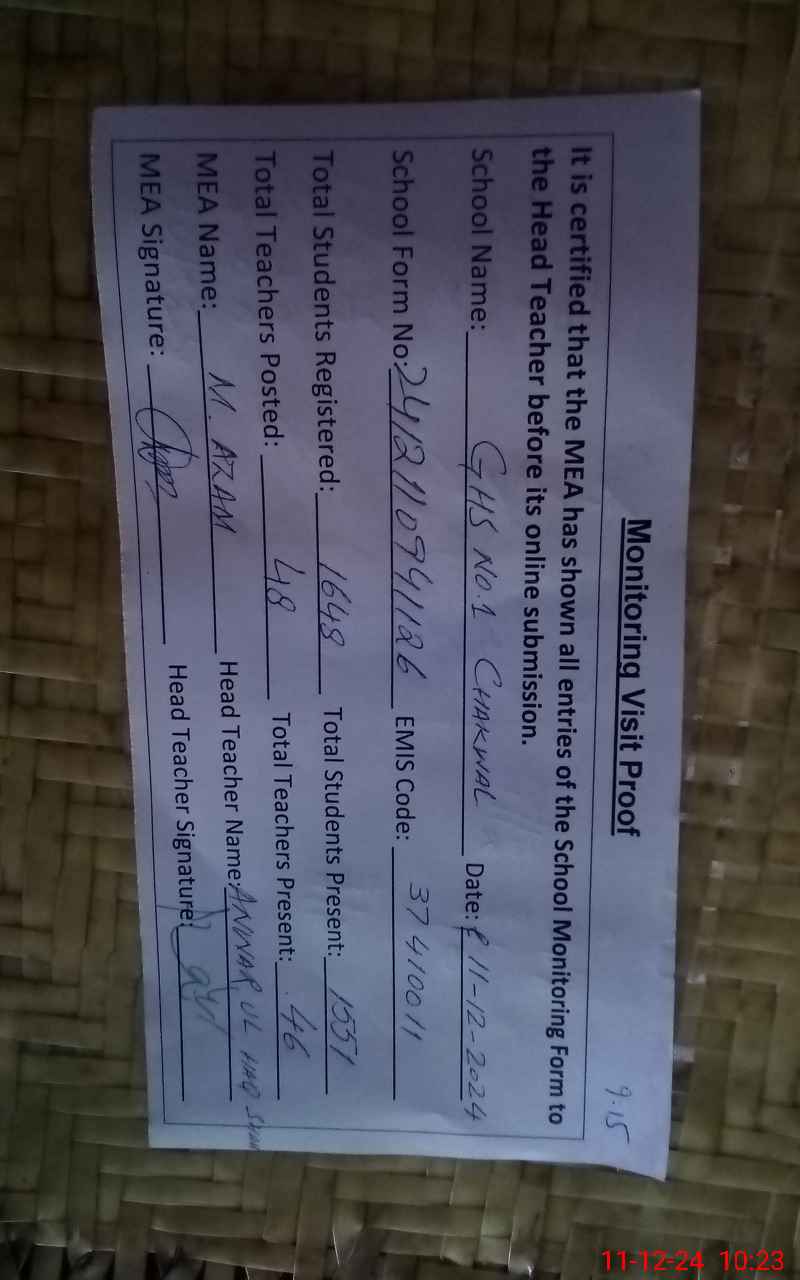 9:15
Monitoring Visit Proof
It is certified that the MEA has shown all entries of the School Monitoring Form to
the Head Teacher before its online submission.
School Name: GHS NO.1 CHAKWAL Date: 11-12-2024
School Form No: 2412110941126 EMIS Code: 37410011
Total Students Registered: 1648 Total Students Present: 1551
Total Teachers Posted: 48 Total Teachers Present: 46
MEA Name: M. AZAM Head Teacher Name: ANWAR UL HAQ
MEA Signature: Head Teacher Signature:
11-12-24 10:23